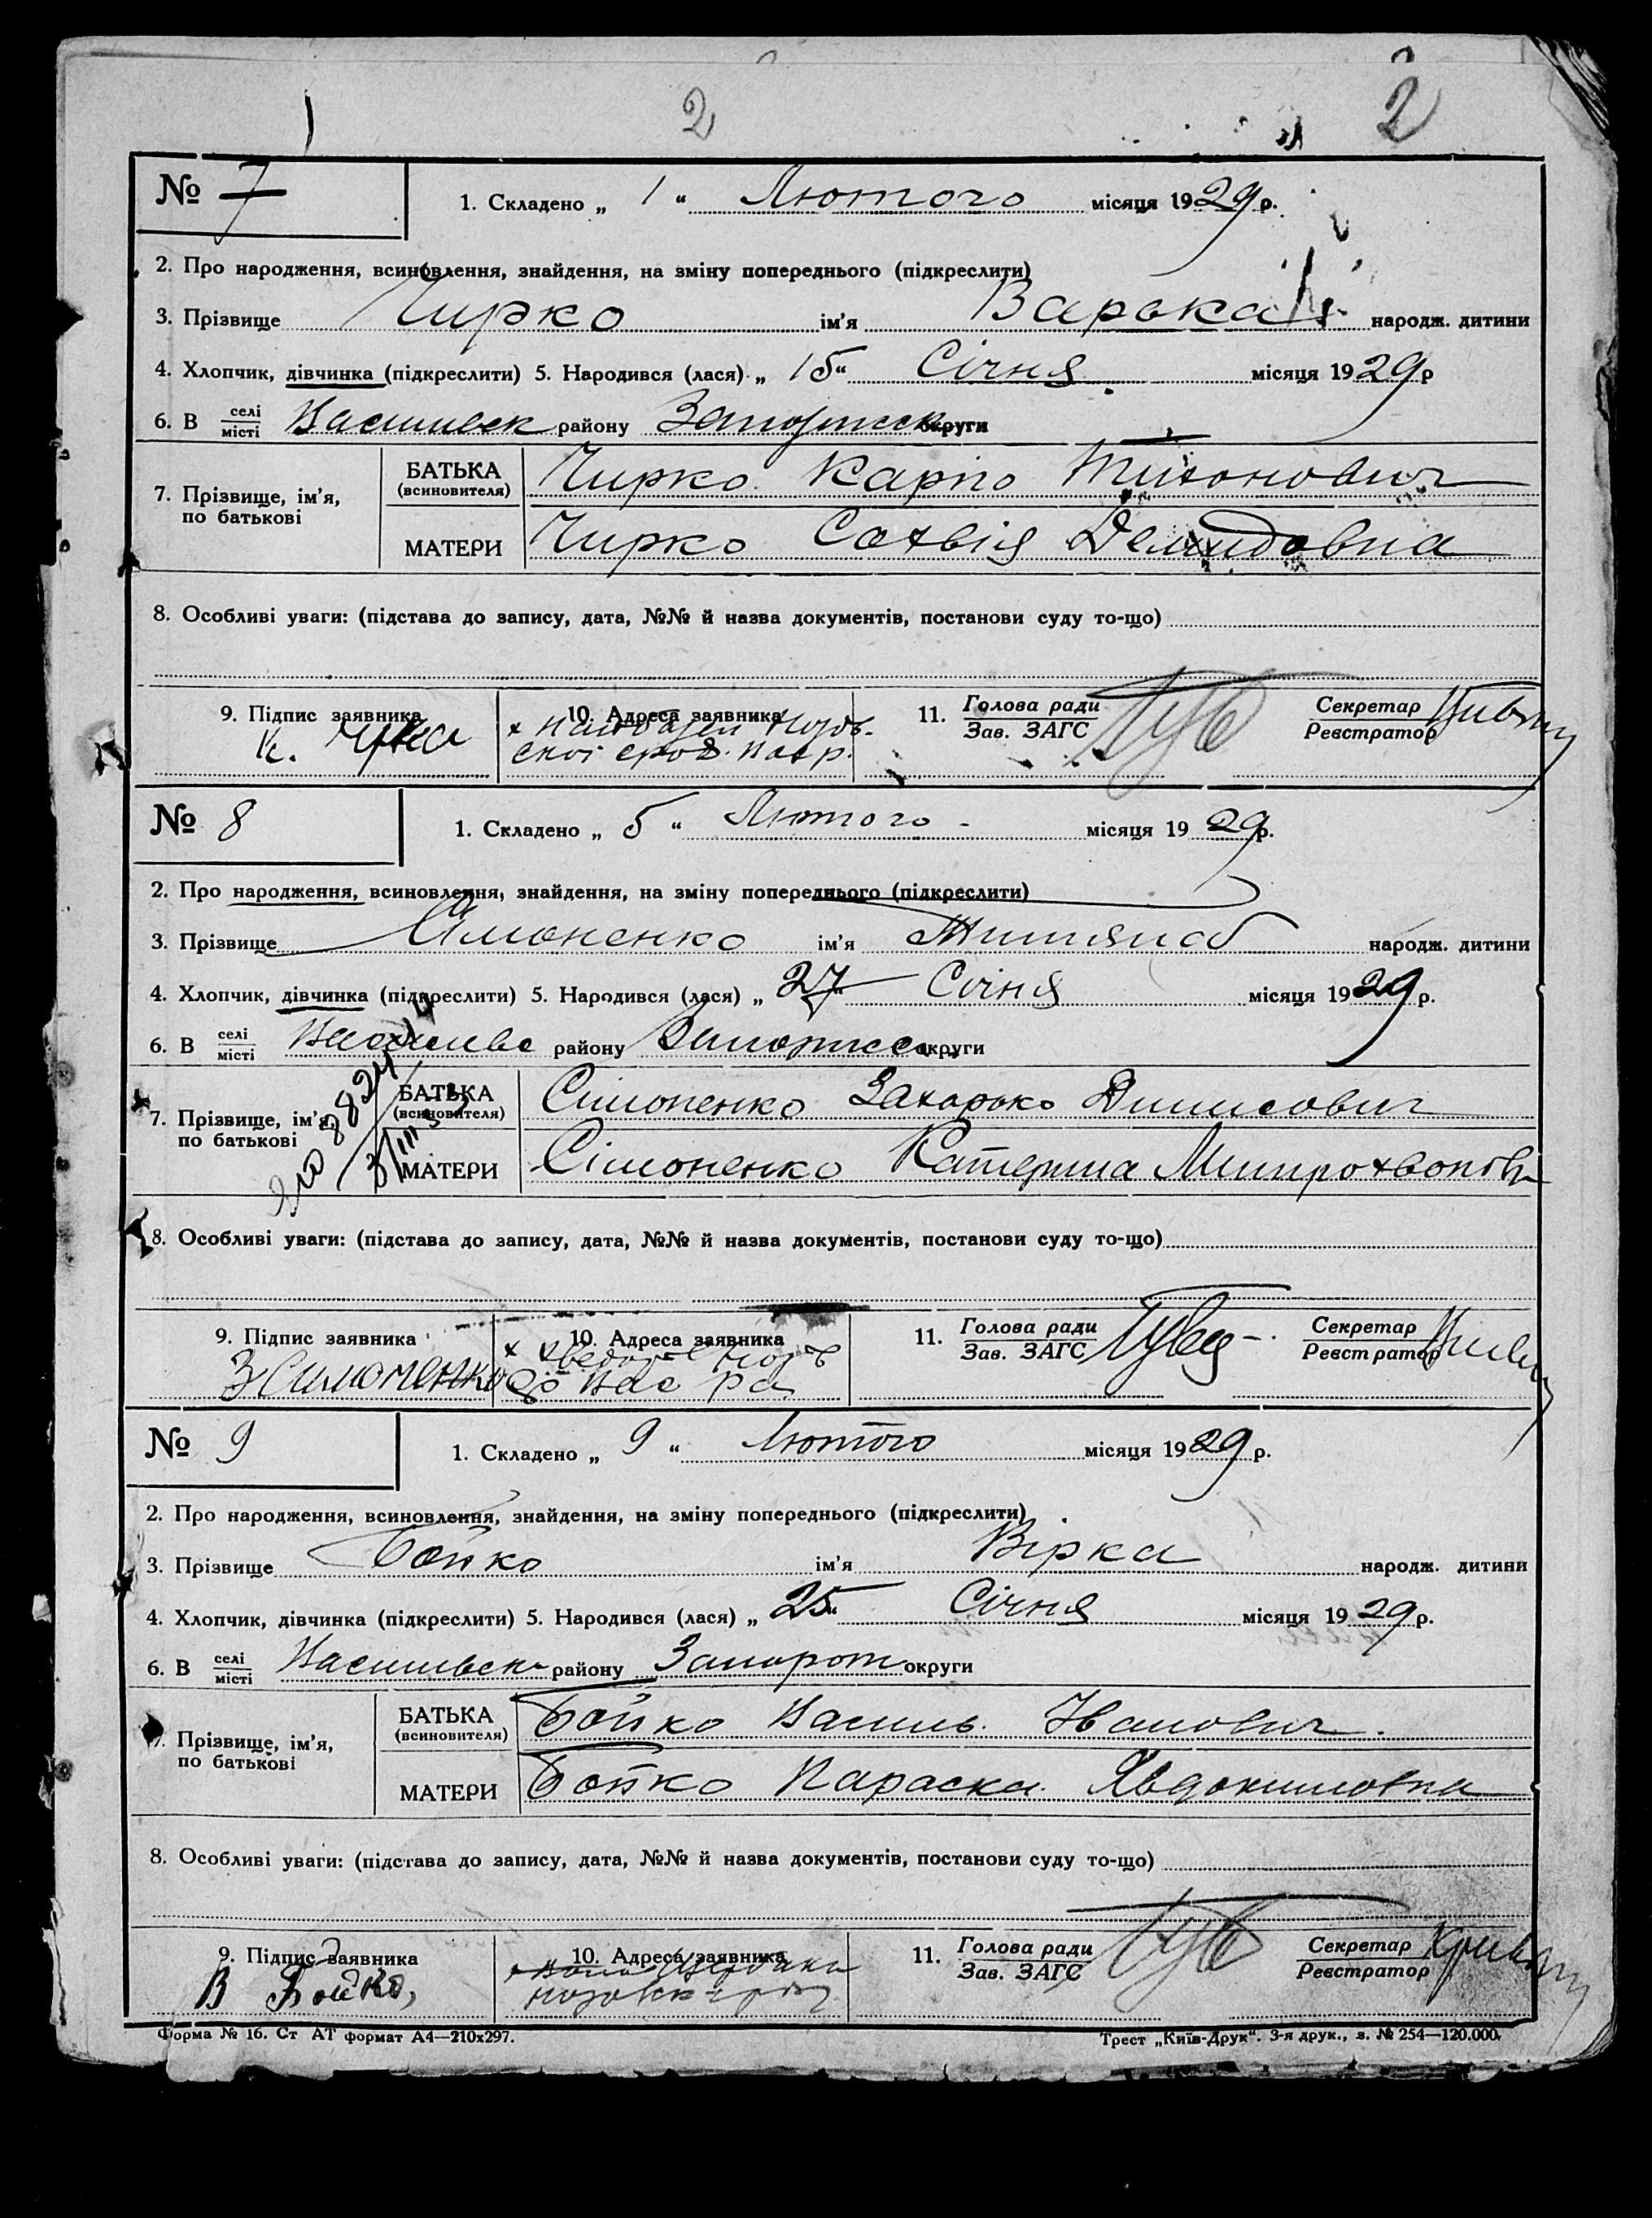 2
2
№ 7
1. Складено „ 1 “ Лютого місяця 1929 р.
2. Про народження, всиновлення, знайдення, на зміну попереднього (підкреслити)
3. Прізвище Чирко ім’я Варька народж. дитини
4. Хлопчик, дівчинка (підкреслити) 5. Народився (лася) „ 15 “ Січня місяця 1929 р
6. В селі місті Васильвск району Запорізск округи
7. Прізвище, ім’я, по батькові
БАТЬКА (всиновителя) Чирко Карпо Тихонович
МАТЕРИ Чирко Сохвія Демидовна
8. Особливі уваги: (підстава до запису, дата, №№ й назва документів, постанови суду то-що)
9. Підпис заявника 10. Адреса заявника 11. Голова ради Секретар
Зав. ЗАГС Реєстратор
К.
№ 8
1. Складено „ 5 “ Лютого місяця 1929 р.
2. Про народження, всиновлення, знайдення, на зміну попереднього (підкреслити)
3. Прізвище Сімоненко ім’я народж. дитини
4. Хлопчик, дівчинка (підкреслити) 5. Народився (лася) „ 27 “ Січня місяця 1929 р.
6. В селі місті Васильвс району округи
7. Прізвище, ім’я, по батькові
БАТЬКА (всиновителя) Сімоненко Захарько Динисович
МАТЕРИ Сімоненко Катерина
8. Особливі уваги: (підстава до запису, дата, №№ й назва документів, постанови суду то-що)
9. Підпис заявника 10. Адреса заявника 11. Голова ради Секретар
Зав. ЗАГС Реєстратор
З Симоненко
№ 9
1. Складено „ 9 “ Лютого місяця 1929 р.
2. Про народження, всиновлення, знайдення, на зміну попереднього (підкреслити)
3. Прізвище Бойко ім’я Вірка народж. дитини
4. Хлопчик, дівчинка (підкреслити) 5. Народився (лася) „ 25 “ Січня місяця 1929 р.
6. В селі місті Васильвск району Запорож округи
7. Прізвище, ім’я, по батькові
БАТЬКА (всиновителя) Бойко Василь Иванович
МАТЕРИ Бойко Параска Явдокимовна
8. Особливі уваги: (підстава до запису, дата, №№ й назва документів, постанови суду то-що)
9. Підпис заявника 10. Адреса заявника 11. Голова ради Секретар
Зав. ЗАГС Реєстратор
В Бойко,
Форма № 16. Ст АТ формат А4—210х297. Трест „Київ-Друк“. 3-я друк., з. № 254—120.000.